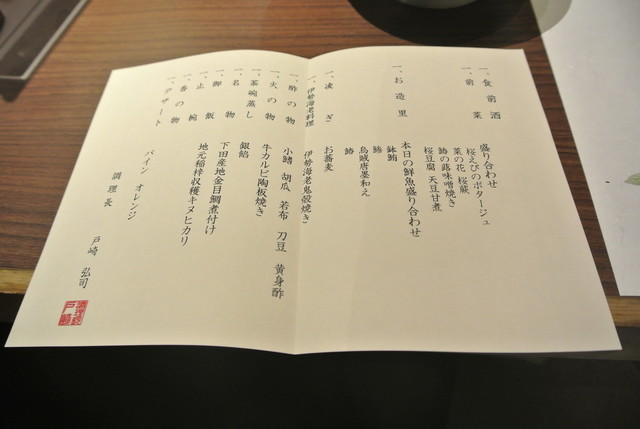 一、食前酒
一、前菜
盛り合わせ
桜えびのポタージュ
菜の花 桜蕨
鰆の蕗味噌焼き
桜豆腐 天豆甘煮
一、お造里
本日の鮮魚盛り合わせ
鉢鮪
鯵
烏賊唐墨和え
鰆
一、凌ぎ
お蕎麦
一、伊勢海老料理
伊勢海老鬼殻焼き
一、酢の物
小鰭 胡瓜 若布 刀豆 黄身酢
一、火の物
牛カルビ陶板焼き
一、茶碗蒸し
銀餡
一、名物
下田産地金目鯛煮付け
一、御飯
地元稲梓収穫キヌヒカリ
一、止椀
一、香の物
一、デザート
パイン オレンジ
調理長 戸崎 弘司